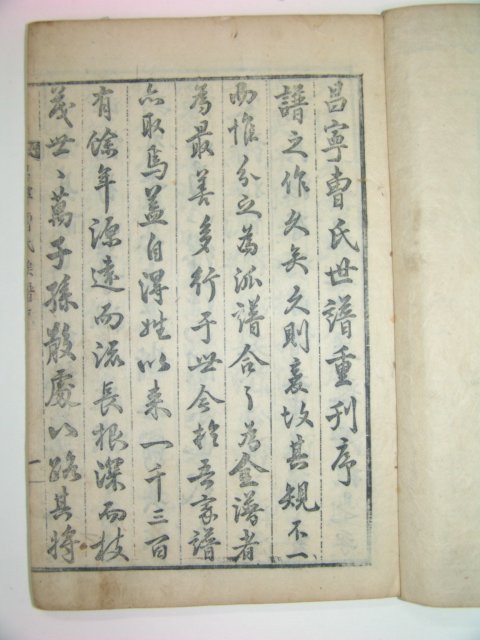 昌寧曺氏世譜重刊序
譜之作久矣久則衰故其規不一
而惟分之為派譜合之為全譜者
為最善多行于世今於吾家譜
亦取焉盖自得姓以来一千三百
有餘年源遠而流長根深而枝
茂世〻萬子孫散處八路其將